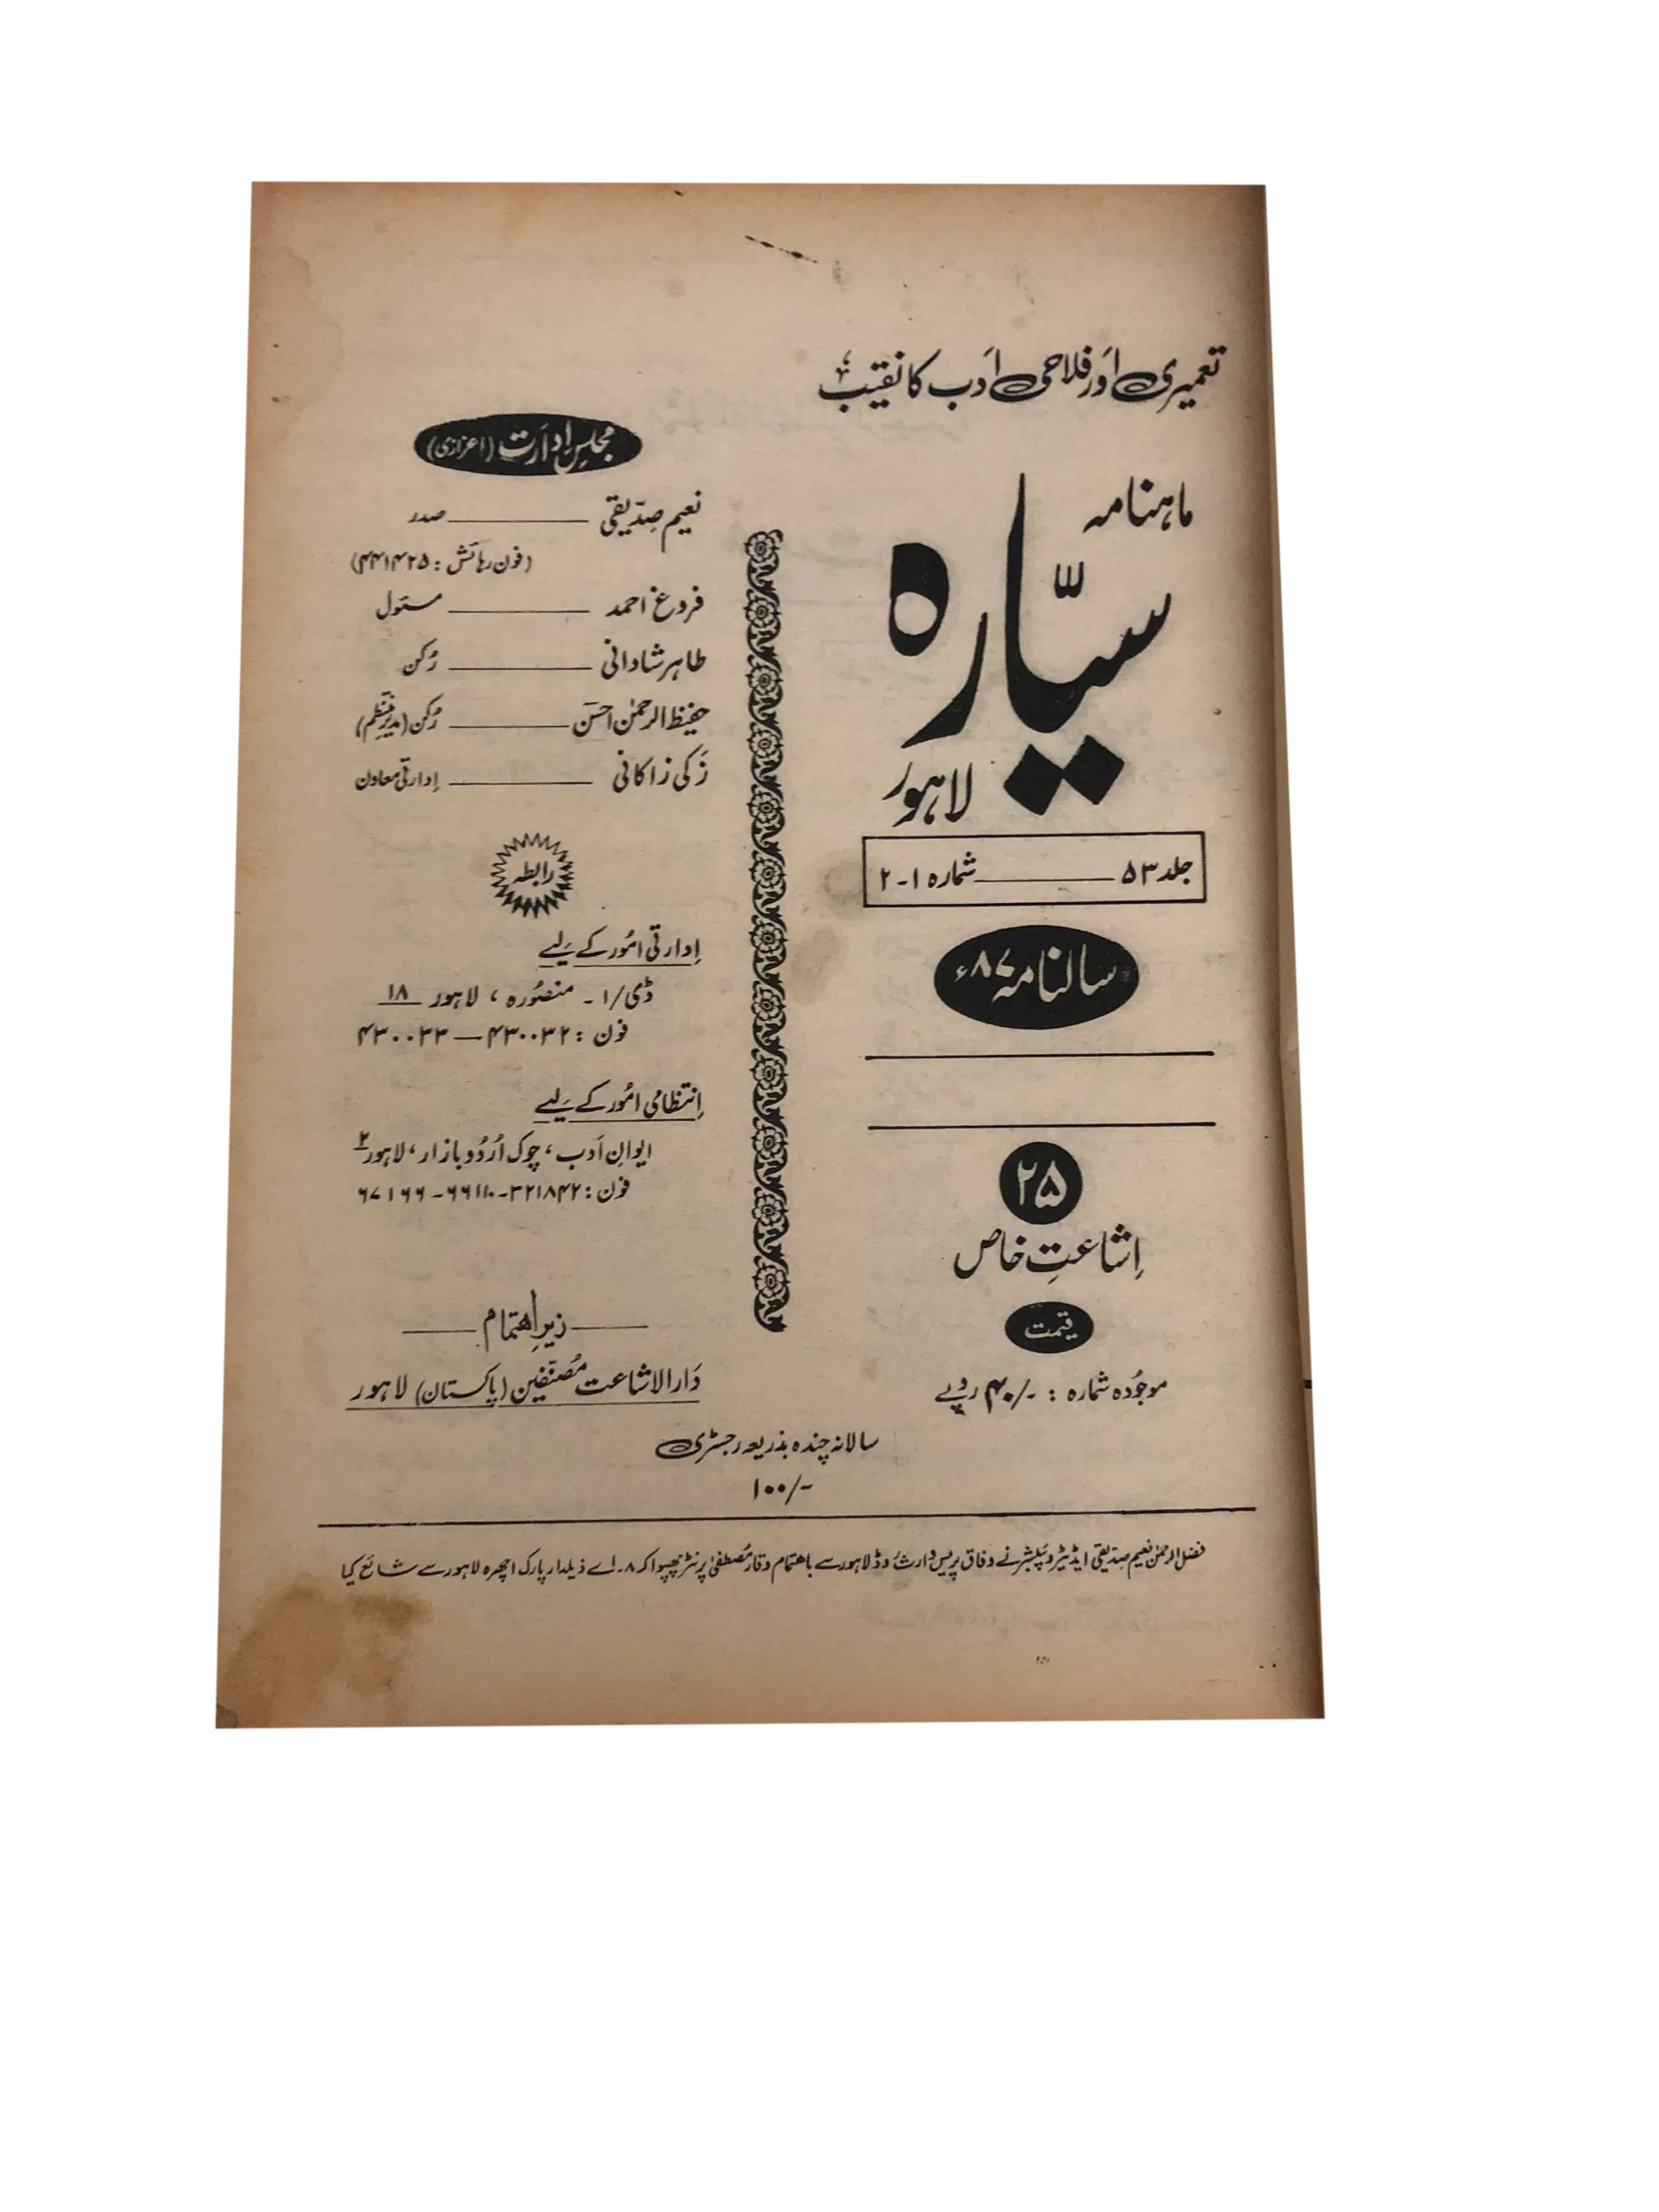 تعمیری اور فلاحی ادب کا نقیب
ماہنامہ
سیّارہ
لاہور
جلد ۵۳ ــــــ شمارہ ۱-۲
سالنامہ ۸۷ء
۲۵
اِشاعتِ خاص
قیمت
موجُودہ شمارہ : -/۴۰ روپے
مجلسِ اِدارَت (اعزازی)
نعیم صِدّیقی ــــــ صدر
(فون رہائش : ۴۴۱۴۲۵)
فروغ احمد ــــــ مسئول
طاہر شادانی ــــــ رُکن
حفیظ الرحمٰن احسن ــــــ رُکن (مدیرِ منتظم)
زَکی زاکانی ــــــ اِدارتی معاون
رابطہ
اِدارتی امُور کے لیے
ڈی/۱ - منصُورہ ، لاہور ۱۸
فون : ۴۳۰۰۳۲ — ۴۳۰۰۳۳
اِنتظامی امُور کے لیے
ایوانِ اَدب ، چوک اُردُو بازار ، لاہور ۲
فون : ۳۲۱۸۴۲ - ۶۶۱۱۰ - ۶۷۱۶۶
زیرِ اہتمام
دَارالاشاعت مُصنّفین (پاکستان) لاہور
سالانہ چندہ بذریعہ رجسٹری
-/۱۰۰
فضل الرحمٰن نعیم صدّیقی ایڈیٹر و پبلشر نے وفاق پریس وارث روڈ لاہور سے باہتمام وقار مُصطفیٰ پرنٹر چھپوا کر ۸-اے ذیلدار پارک اچھرہ لاہور سے شائع کیا